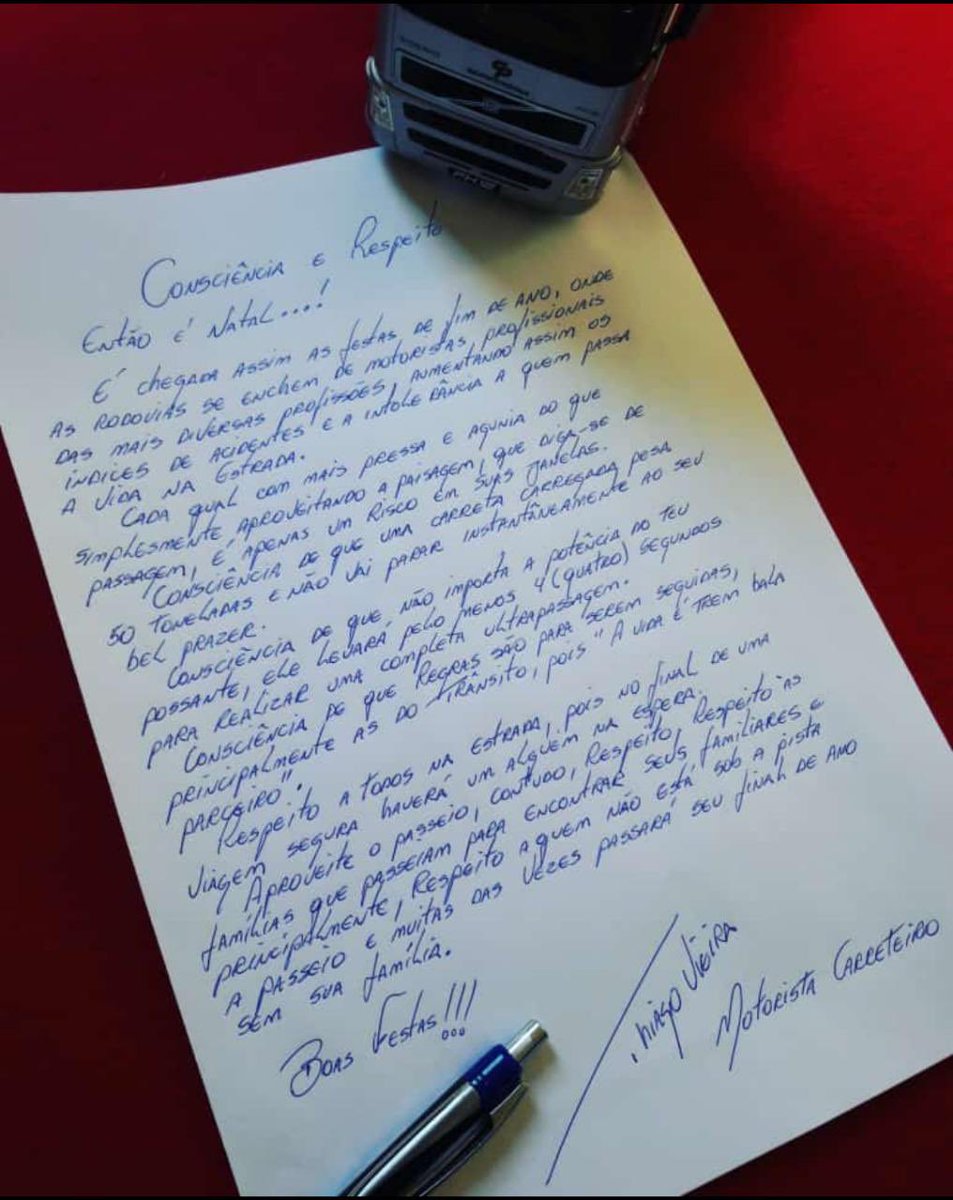 Consciência e Respeito
Então é Natal...!
É chegada assim as festas de fim de ano, onde
as rodovias se enchem de motoristas, profissionais
das mais diversas profissões, aumentando assim os
índices de acidentes e a intolerância a quem passa
a vida na estrada.
Cada qual com mais pressa e agunia do que
simplesmente aproveitando a paisagem, que diga-se de
passagem, é apenas um risco em suas janelas.
Consciência de que uma carreta carregada pesa
50 toneladas e não vai parar instantâneamente ao seu
bel prazer.
Consciência de que, não importa a potência do teu
possante, ele levará pelo menos 4 (quatro) segundos
para realizar uma completa ultrapassagem.
Consciência de que regras são para serem seguidas,
principalmente as do trânsito, pois "A vida é trem bala
parceiro".
Respeito a todos na estrada, pois no final de uma
viagem segura haverá um alguém na espera.
Aproveite o passeio, contudo, respeito, respeito às
famílias que passeiam para encontrar seus familiares e
principalmente, respeito a quem não está sob a pista
a passeio e muitas das vezes passará seu final de ano
sem sua família.
Boas Festas!!!
Thiago Vieira
Motorista Carreteiro